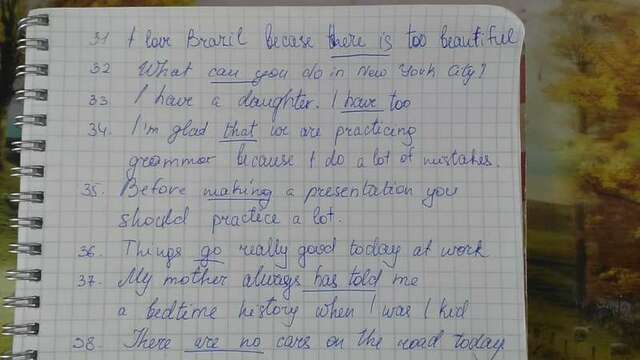 31 I love Brazil becase there is too beautiful
32 What can you do in new York city?
33 I have a daughter. I have too
34. I'm glad that we are practicing
grammar because I do a lot of mistakes.
35. Before making a presentation you
should practice a lot.
36. Things go really good today at work
37. My mother always has told me
a bedtime history when I was I kid
38. There are no cars on the road today